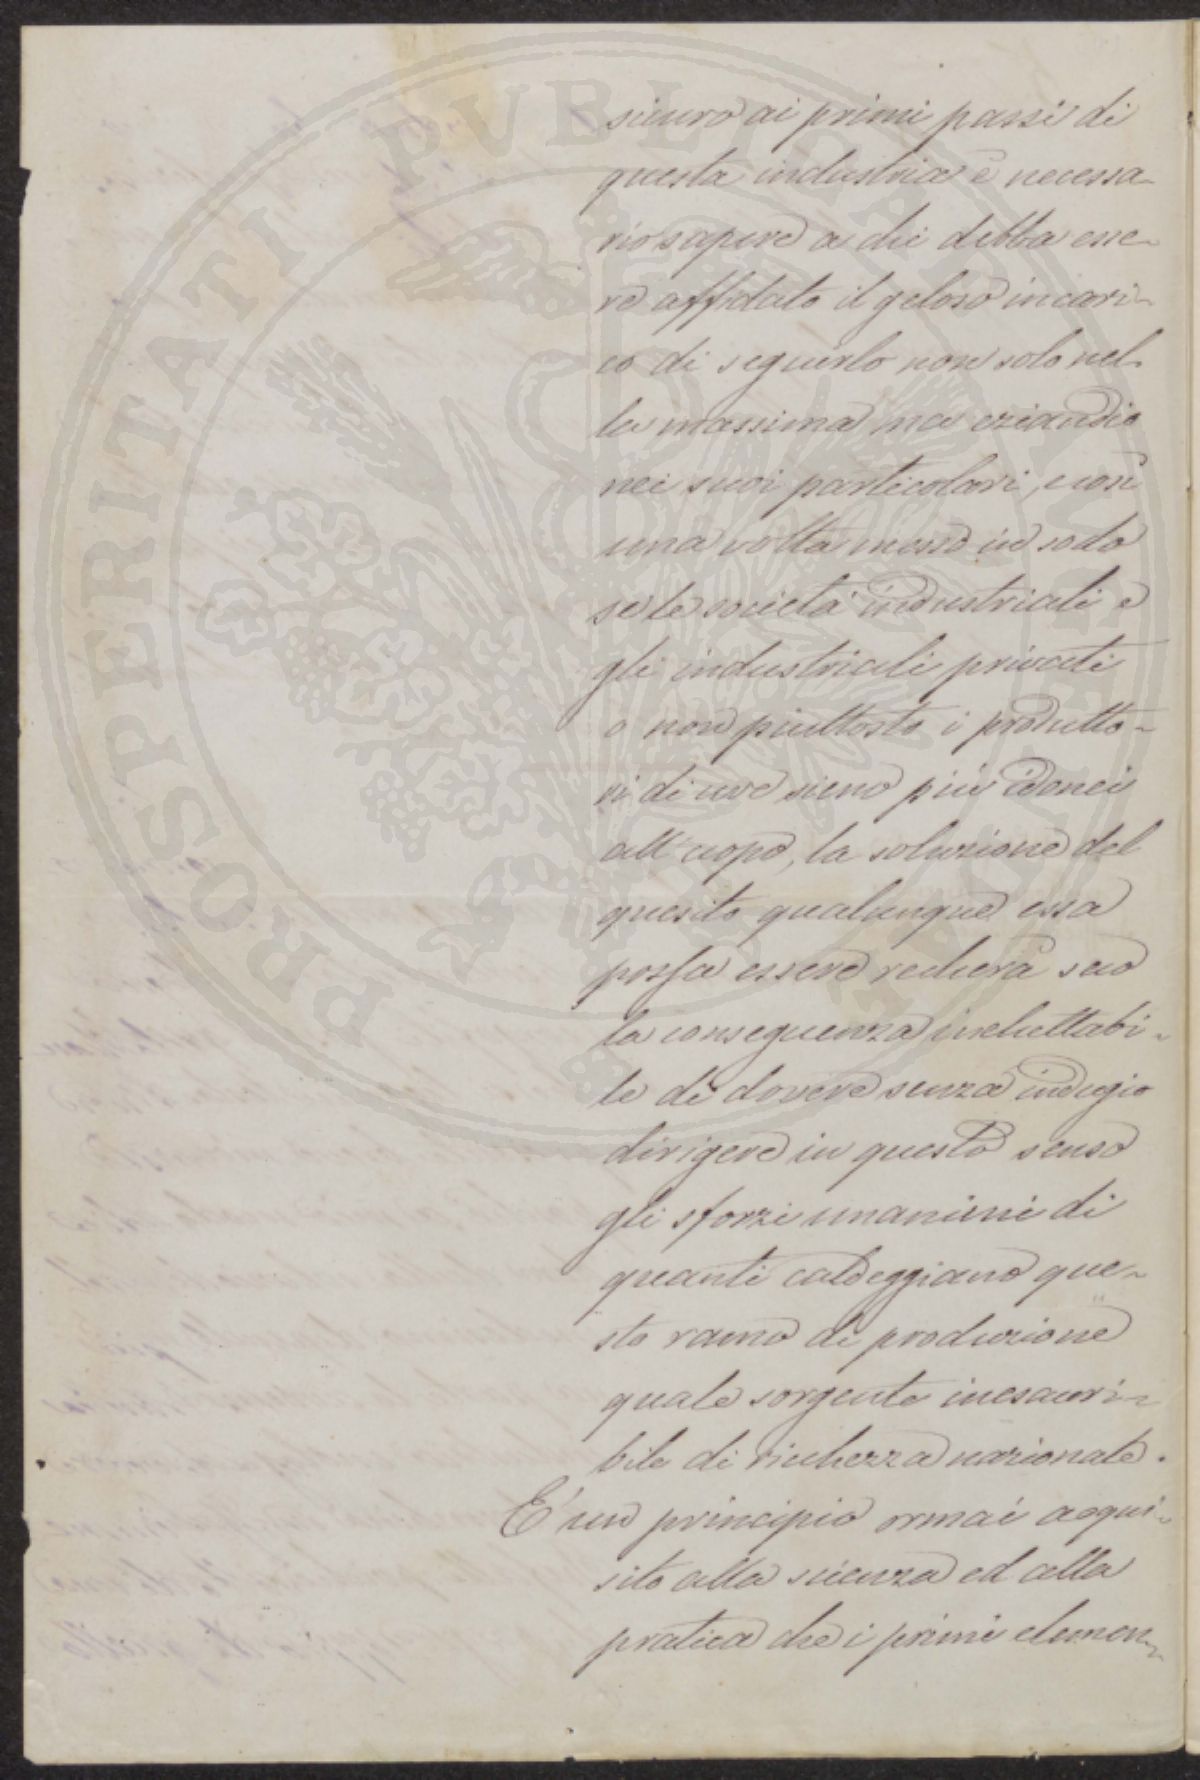 sicuro ai primi passi di
questa industria è necessa-
rio sapere a chi debba esse-
re affidato il geloso incari-
co di seguirlo non solo nel-
la massima ma eziandio
nei suoi particolari, così
una volta messo in sodo
se le società industriali e
gli industriali privati
o non piuttosto i produtto-
ri di uve sieno più idonei
all'uopo, la soluzione del
quesito qualunque essa
possa essere recherà seco
la conseguenza ineluttabi-
le di dovere senza indugio
dirigere in questo senso
gli sforzi unanimi di
quanti caldeggiano que-
sto ramo di produzione
quale sorgente inesauri-
bile di ricchezza nazionale.
E' un principio ormai acqui-
sito alla scienza ed alla
pratica che i primi elemen-
PROSPERITATI PVBLICAE